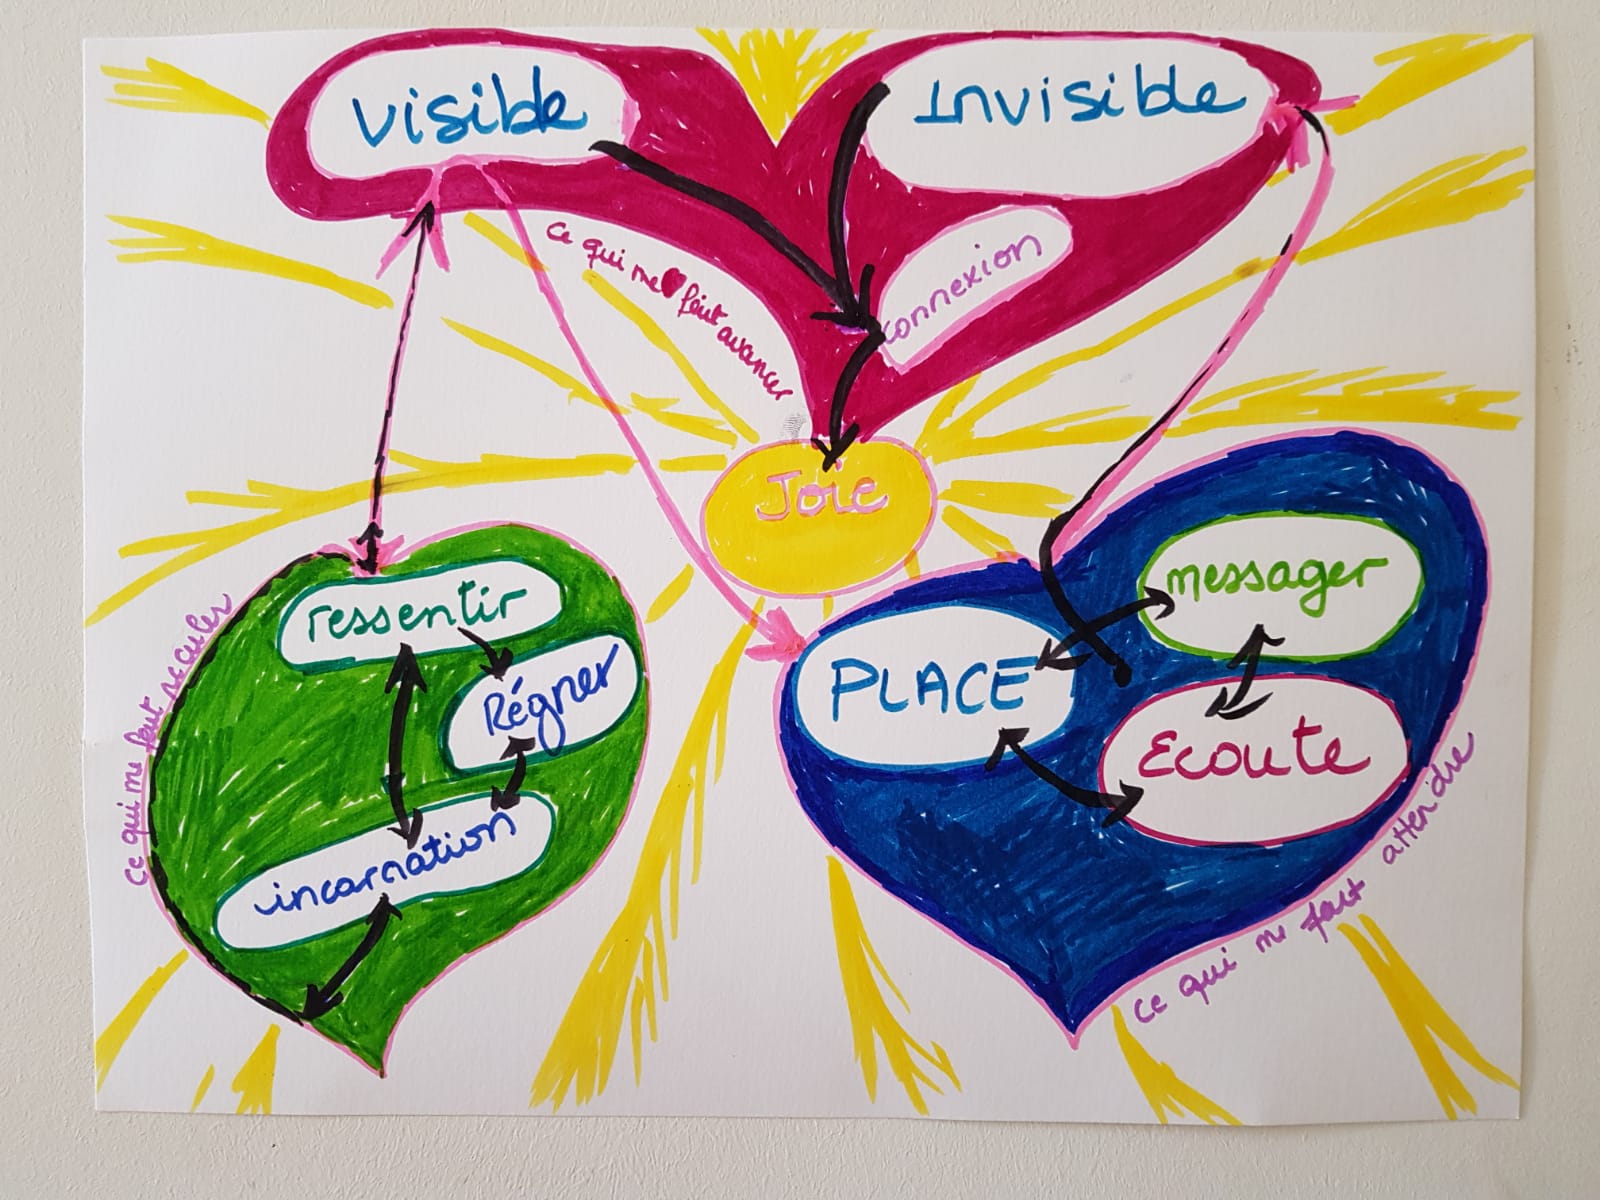 visible
Invisible
connexion
ce qui me fait avancer
Joie
ressentir
Régner
incarnation
ce qui me fait reculer
messager
PLACE
Ecoute
ce qui me fait attendre